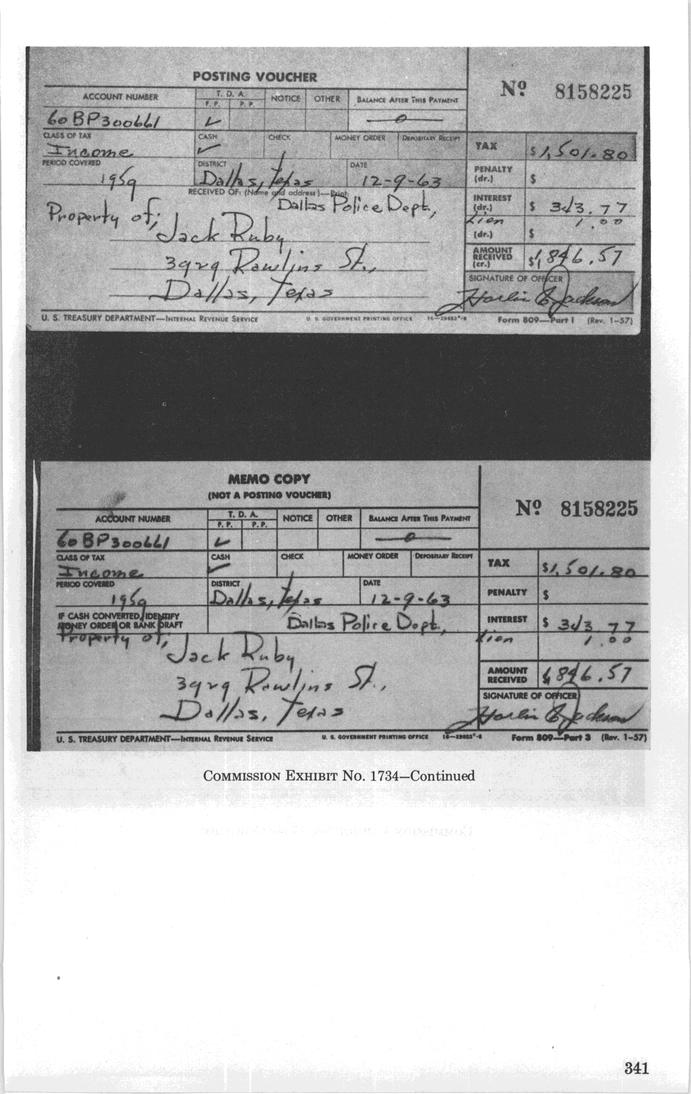 POSTING VOUCHER
Nº 8158225
ACCOUNT NUMBER T. D. A. NOTICE OTHER BALANCE AFTER THIS PAYMENT
F. P. P. P.
60BP300661 ✓ 0
CLASS OF TAX CASH CHECK MONEY ORDER DEPOSITARY RECEIPT
Income ✓
TAX $1,501.80
PERIOD COVERED DISTRICT DATE
1959 Dallas, Texas 12-9-63
PENALTY (dr.) $
RECEIVED OF: (Name and address)—Print
Property of; Dallas Police Dept.,
INTEREST (dr.) $ 343.77
Lien 1.00
(dr.) $
Jack Ruby
3929 Rawlins St.,
AMOUNT RECEIVED (cr.) $1,846.57
Dallas, Texas
SIGNATURE OF OFFICER
Harlin C Jackson
U. S. TREASURY DEPARTMENT—INTERNAL REVENUE SERVICE U. S. GOVERNMENT PRINTING OFFICE Form 809—Part 1 (Rev. 1-57)
MEMO COPY
(NOT A POSTING VOUCHER)
Nº 8158225
ACCOUNT NUMBER T. D. A. NOTICE OTHER BALANCE AFTER THIS PAYMENT
F. P. P. P.
60BP300661 ✓ 0
CLASS OF TAX CASH CHECK MONEY ORDER DEPOSITARY RECEIPT
Income ✓
TAX $1,501.80
PERIOD COVERED DISTRICT DATE
1959 Dallas, Texas 12-9-63
PENALTY $
IF CASH CONVERTED, IDENTIFY
MONEY ORDER OR BANK DRAFT
Dallas Police Dept.,
INTEREST $ 343.77
Property of,
Lien 1.00
Jack Ruby
3929 Rawlins St.,
AMOUNT RECEIVED 1,846.57
Dallas, Texas
SIGNATURE OF OFFICER
Harlin C Jackson
U. S. TREASURY DEPARTMENT—INTERNAL REVENUE SERVICE U. S. GOVERNMENT PRINTING OFFICE Form 809—Part 3 (Rev. 1-57)
COMMISSION EXHIBIT No. 1734—Continued
341